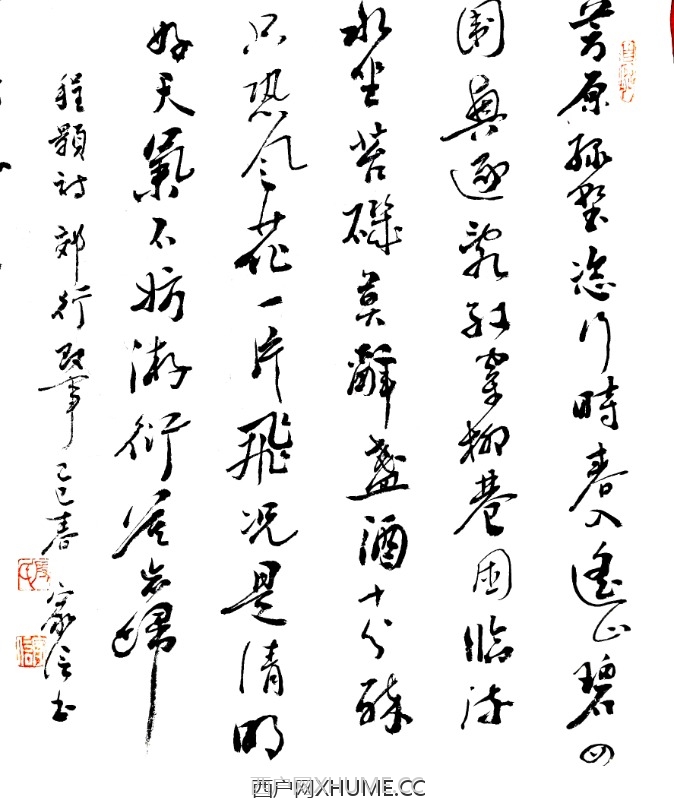 芳原綠野恣行時春入遙山碧四
圍興逐亂紅穿柳巷困臨流
水坐苔磯莫辭盞酒十分醉
只恐風花一片飛況是清明
好天氣不妨游衍莫忘歸
程顥詩郊行即事己巳春家信書
西户网XHUME.CC